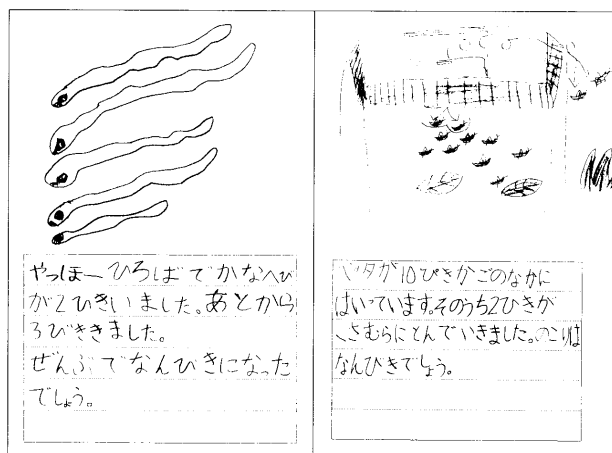 やっほーひろばでかなへび
が2ひきいました。あとから
3びききました。
ぜんぶでなんびきになった
でしょう。
バッタが10ぴきかごのなかに
はいっています。そのうち2ひきが
くさむらにとんでいきました。のこりは
なんびきでしょう。